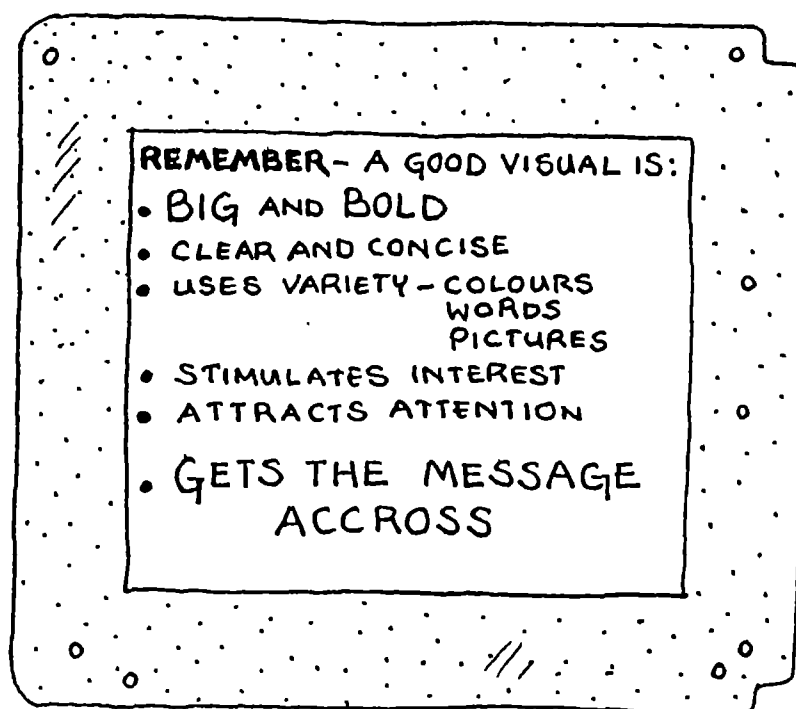 REMEMBER - A GOOD VISUAL IS:
• BIG AND BOLD
• CLEAR AND CONCISE
• USES VARIETY - COLOURS
WORDS
PICTURES
• STIMULATES INTEREST
• ATTRACTS ATTENTION
• GETS THE MESSAGE
ACCROSS